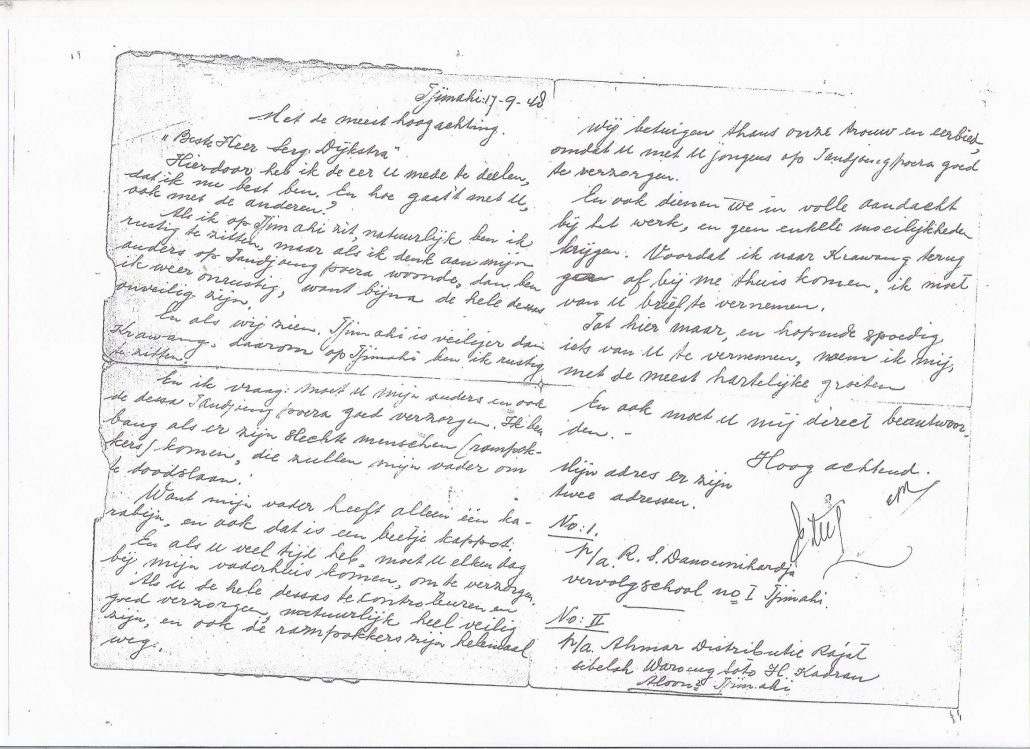 Tjimahi: 17-9-48
Met de meest hoogachting.
"Beste Heer Serg. Dijkstra"
Hierdoor heb ik de eer U mede te deelen,
dat ik nu best ben. En hoe gaat met U,
ook met de anderen?
Als ik op Tjimahi zit, natuurlijk ben ik
rustig te zitten, maar als ik denk aan mijn
ouders op Tandjoengpoera woonde, dan ben
ik weer onrustig, want bijna de hele dessa
onveilig zijn.
En als wij zien. Tjimahi is veiliger dan
Krawang. daarom op Tjimahi ben ik rustig
te zitten.
En ik vraag: moet U mijn ouders en ook
de dessa Tandjungpoera goed verzorgen. Ik ben
bang als er zijn slechte menschen (rampok-
kers) komen, die zullen mijn vader om
te doodslaan.
Want mijn vader heeft alleen één ka-
rabijn, en ook dat is een beetje kappot.
En als U veel tijd heb, moet U elken dag
bij mijn vaderhuis komen, om te verzorgen.
Als U de hele dessas te controleuren en
goed verzorgen, natuurlijk heel veilig
zijn, en ook de rampokkers zijn helemaal
weg.
Wij betuigen thans onze trouw en eerbied,
omdat U met U jongens op Tandjoengpoera goed
te verzorgen.
En ook dienen we in volle aandacht
bij het werk, en geen enkele moeilijkheden
krijgen. Voordat ik naar Krawang terug
of bij me thuis komen, ik moet
van U brief te vernemen.
Tot hier maar, en hopende spoedig
iets van U te vernemen, noem ik mij,
met de meest hartelijke groeten
En ook moet U mij direct beantwoor-
den.-
Hoog achtend.
Mijn adres er zijn
twee adressen.
No: I.
p/a. R. S. Danoemihardja
vervolgschool no I Tjimahi.
No: II
p/a. Ahmar Distributie Rajat
sibelah Waroeng Soto H. Kadran
Aloon2 Tjimahi